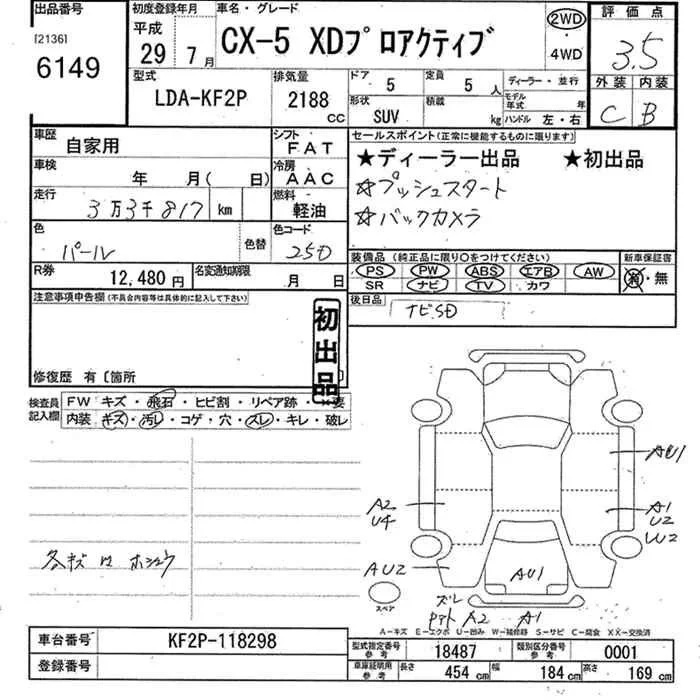 出品番号
[2136]
6149
初度登録年月
平成
29年 7月
車名・グレード
CX-5 XDプロアクティブ
2WD
・
4WD
評価点
3.5
外装 内装
C B
型式
LDA-KF2P
排気量
2188 CC
ドア 5
定員 5 人
形状 SUV
積載 kg
ディーラー・並行
モデル年式 年
ハンドル 左・右
車歴 自家用
シフト FAT
車検 年 月( 日)
冷房 AAC
走行 3万3千817 km
燃料 軽油
色 パール
色替
色コード 25D
R券 12,480円
名変通知期限 月 日
セールスポイント(正常に機能するものに限ります)
★ディーラー出品 ★初出品
☆プッシュスタート
☆バックカメラ
装備品 (純正品に限り○をつけてください)
PS PW ABS エアB AW
SR ナビ TV カワ
新車保証書
有・無
後日品 ナビSD
注意事項申告欄(不具合内容等は具体的に記入して下さい)
初出品
修復歴 有〔箇所
検査員記入欄
FW キズ・飛石・ヒビ割・リペア跡・×要
内装 キズ・汚レ・コゲ・穴・スレ・キレ・破レ
AU1
A2
U4
A1
U2
W2
AU2
AU1
各キズ ホシュウ
スペア
ズレ
A2 A1
A-キズ E-エクボ U-凹み W-補修跡 S-サビ C-腐食 XX-交換済
車台番号 KF2P-118298
登録番号
型式指定番号 参考 18487
類別区分番号 参考 0001
車庫証明用 参考 長さ 454 cm 幅 184 cm 高さ 169 cm